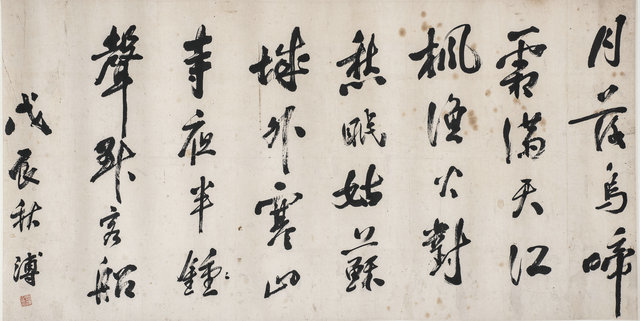 月落烏啼
霜滿天江
楓漁火對
愁眠姑蘇
城外寒山
寺夜半鍾
聲到客船
戊辰秋溥